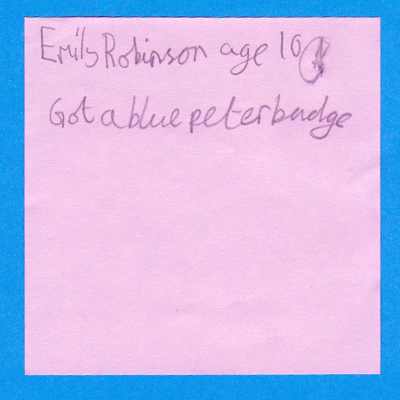 Emily Robinson age 10
Got a blue peter badge